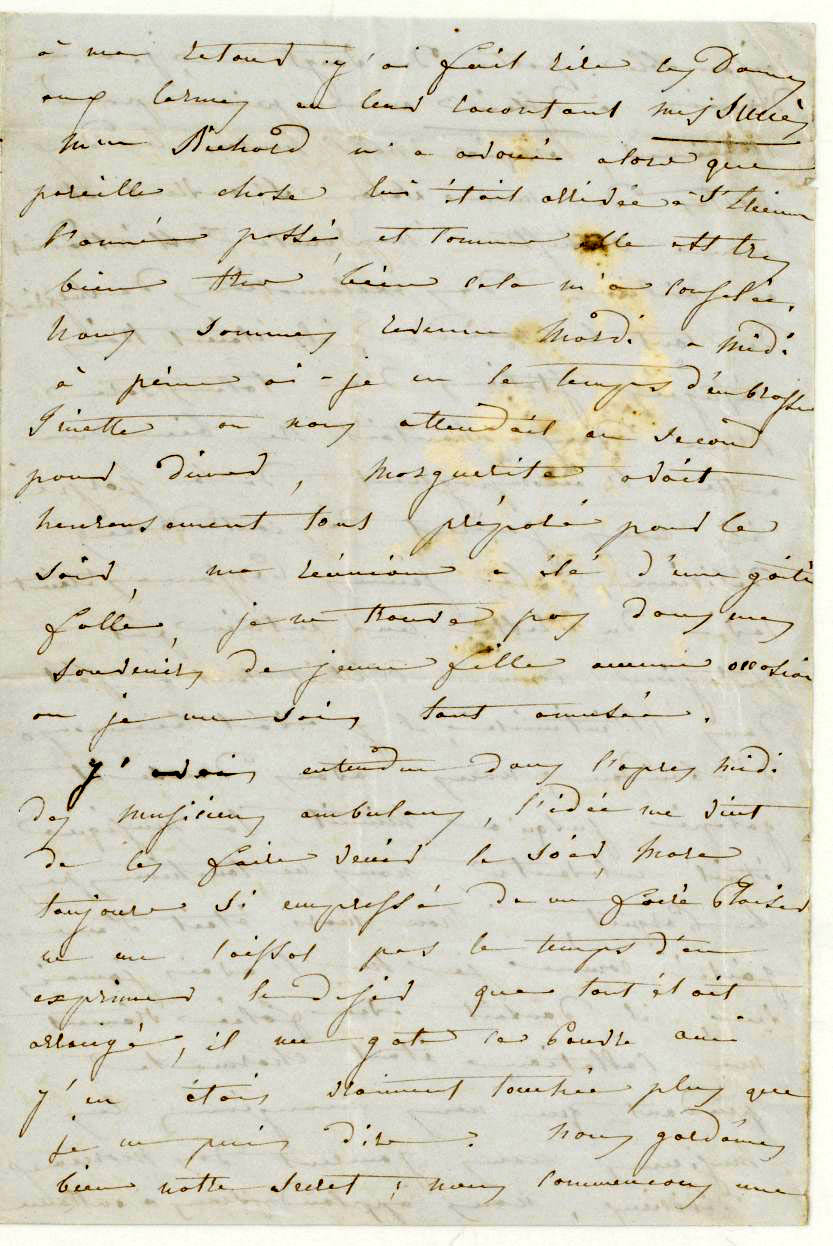 à mon retour j'ai fait rire ces Dames
aux larmes en leur racontant mes succès
Mme Richard m'a avouée alors que
pareille chose lui était arrivée à St Etienne
l'année passée, et comme elle est très
bien très bien cela m'a consolée.
Nous sommes revenus Mardi à midi
à peine ai-je eu le temps d'embrasser
Ginette on nous attendait au second
pour diner, Marguerite avait
heureusement tous préparé pour le
soir, ma réunion a été d'une gaîté
folle, je ne trouve pas dans mes
souvenirs de jeune fille aucune occasion
ou je me sois tant amusée.
J'avais entendu dans l'apres midi
des musiciens ambulans, l'idée me vint
de les faire venir le soir, Marc
toujours si empressé de me faire plaisir
ne me laissat pas le temps d'en
exprimer le desir que tout était
arrangé, il me gate ce pauvre ami
j'en étais vraiment touchée plus que
je ne puis dire. Nous gardâmes
bien notre secret ; nous commencons une